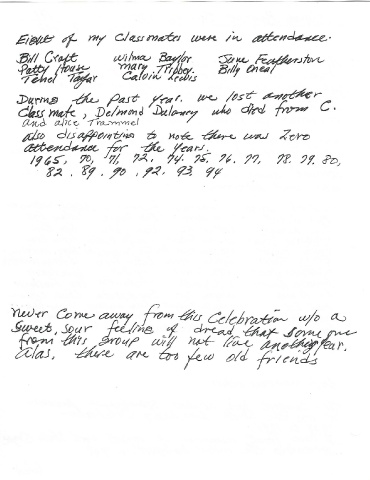 Eight of my classmates were in attendance.
Bill Craft Wilma Baylor June Featherston
Patty House Mary Trippey. Billy Oneal
Tehel Taylor Calvin Lewis
During the past year. we lost another
classmate, Delmond Dulaney who died from C.
and Alice Trammel
also disappointing to note there was Zero
attendance for the years.
1965, 70, 71, 72, 74. 75. 76. 77. 78. 79. 80,
82. 89. 90. 92. 93. 94
never come away from this Celebration w/o a
sweet, sour feeling of dread that some one
from this group will not live another year.
Alas, there are too few old friends